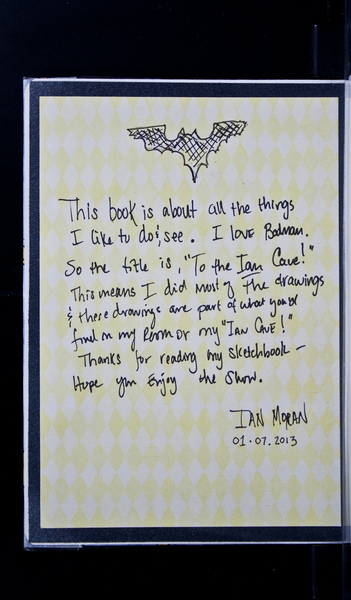 This book is about all the things
I like to do & see. I love Batman.
So the title is, "To the Ian Cave!"
This means I did most of the drawings
& these drawings are part of what you'd
find in my Room or my "IAN CAVE!"
Thanks for reading my sketchbook –
Hope you Enjoy the Show.
IAN MORAN
01.07.2013